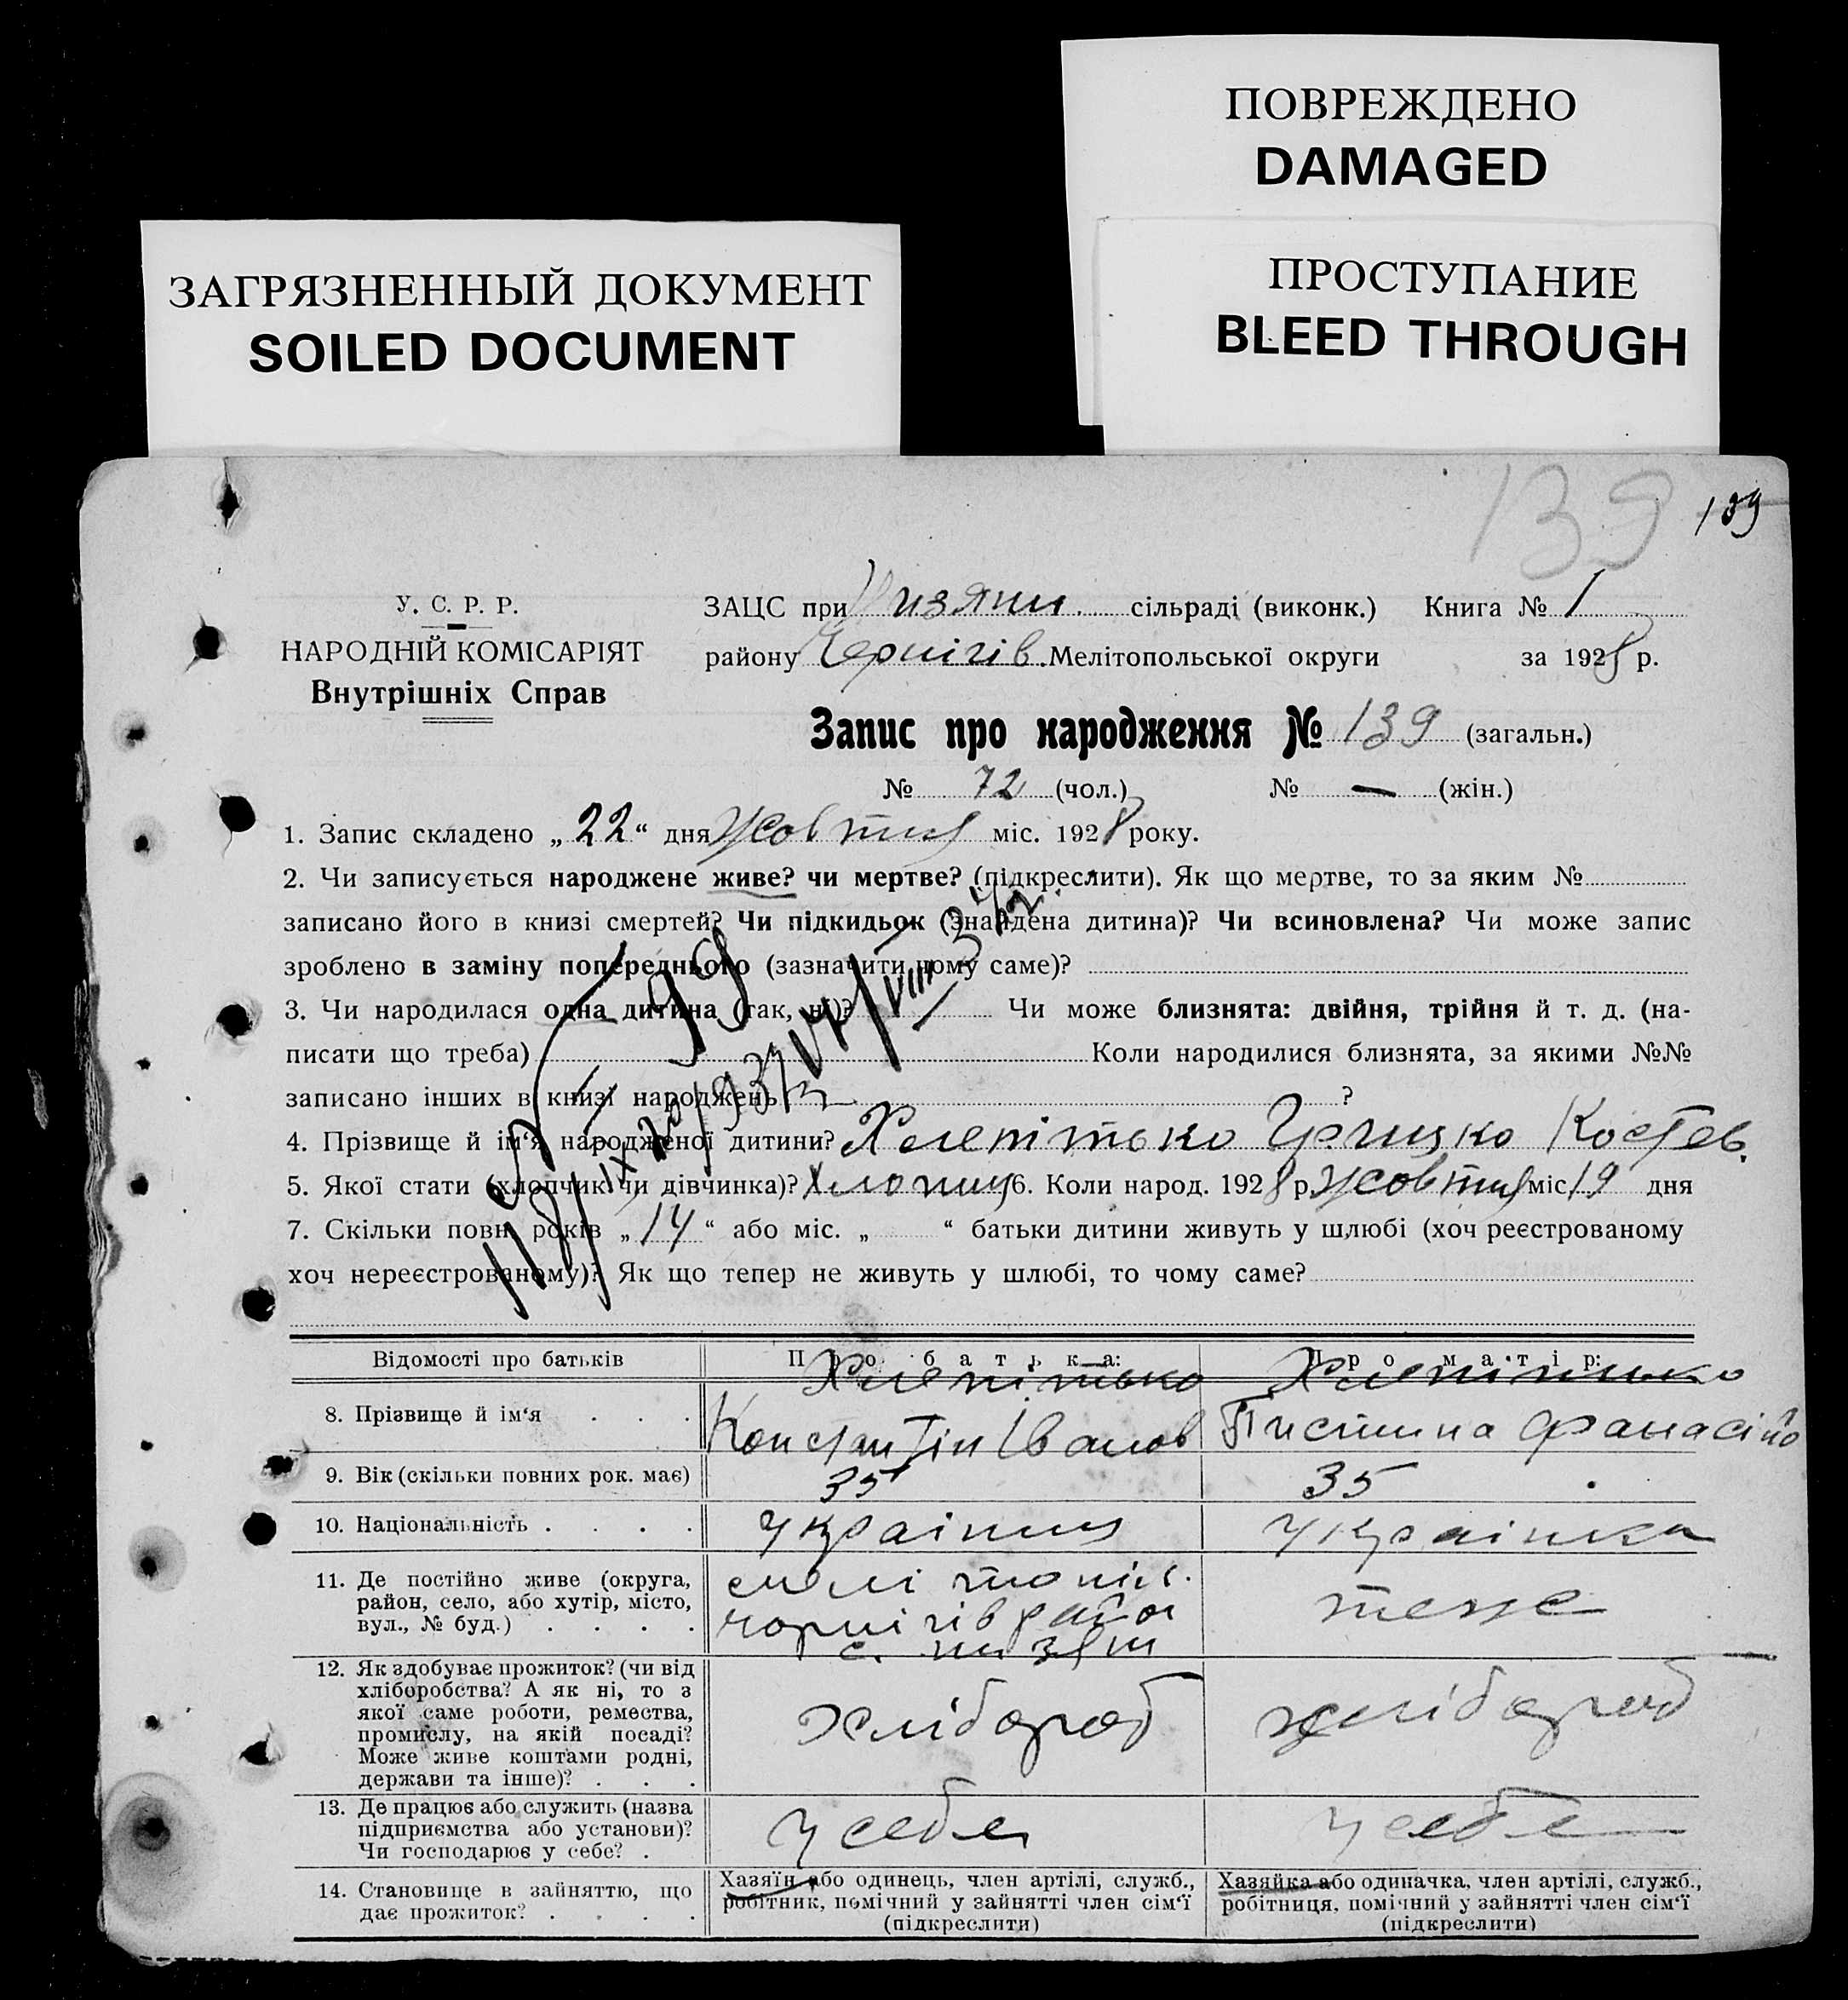 ПОВРЕЖДЕНО
DAMAGED
ЗАГРЯЗНЕННЫЙ ДОКУМЕНТ
SOILED DOCUMENT
ПРОСТУПАНИЕ
BLEED THROUGH
139 139
У. С. Р. Р.
НАРОДНІЙ КОМІСАРІЯТ
Внутрішніх Справ
ЗАЦС при Низяни сільраді (виконк.) Книга № 1
району Чернігів. Мелітопольської округи за 1928 р.
Запис про народження № 139 (загальн.)
№ 72 (чол.) № — (жін.)
1. Запис складено „22“ дня жовтня міс. 1928 року.
2. Чи записується народжене живе? чи мертве? (підкреслити). Як що мертве, то за яким №
записано його в книзі смертей? Чи підкидьок (знайдена дитина)? Чи всиновлена? Чи може запис
зроблено в заміну попереднього (зазначити чому саме)?
3. Чи народилася одна дитина (так, ні)? Чи може близнята: двійня, трійня й т. д. (на-
писати що треба) Коли народилися близнята, за якими №№
записано інших в книзі народжень ?
4. Прізвище й ім‘я народженої дитини? Хлепітько Грицко Костев.
5. Якої стати (хлопчик чи дівчинка)? Хлопиц 6. Коли народ. 1928 р. жовтня міс. 19 дня
7. Скільки повн. років „14“ або міс. „ “ батьки дитини живуть у шлюбі (хоч реєстрованому
хоч нереєстрованому)? Як що тепер не живуть у шлюбі, то чому саме?
Відомості про батьків Про батька: Про матір:
Хлепітько Хлепітько
8. Прізвище й ім‘я . . . Константін Іванов Пистина Фанасійо
9. Вік (скільки повних рок. має) 35 35
10. Національність . . . . Українец Українка
11. Де постійно живе (округа, район, село, або хутір, місто, вул., № буд.) . . . .
мелітопіл.
чорнігів района
с. низян
теже
12. Як здобуває прожиток? (чи від хліборобства? А як ні, то з якої саме роботи, ремества, промислу, на якій посаді? Може живе коштами родні, держави та інше)? . . .
хлібороб хлібороб
13. Де працює або служить (назва підприємства або установи)? Чи господарює у себе? .
у себе у себе
14. Становище в зайняттю, що дає прожиток? . . . .
Хазяїн або одинець, член артілі, служб., робітник, помічний у зайнятті член сім‘ї (підкреслити)
Хазяйка або одиначка, член артілі, служб., робітниця, помічний у зайнятті член сім‘ї (підкреслити)